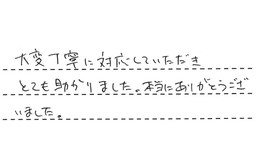 大変丁寧に対応していただき
とても助かりました。本当にありがとうござ
いました。